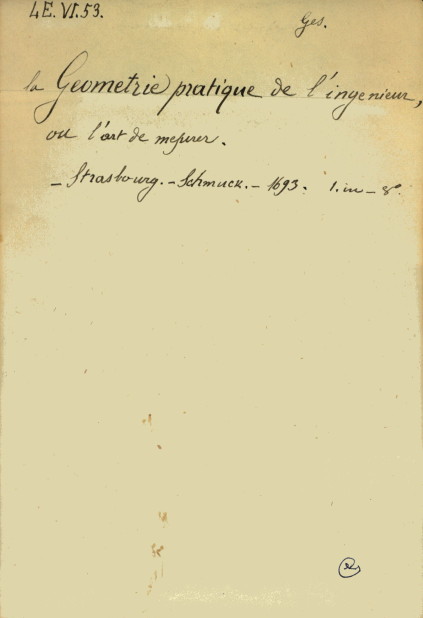 4E.VI.53.
Ges.
la Geometrie pratique de l'ingenieur,
ou l'art de mesurer.
- Strasbourg. - Schmuck. - 1693. 1. in - 8°.